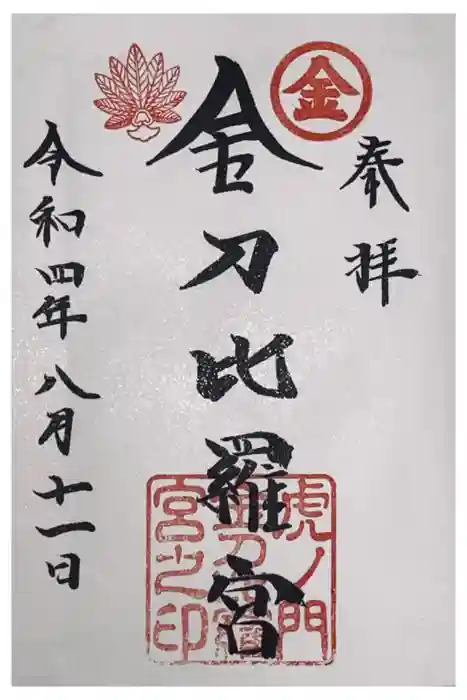 金
奉拝
金刀比羅宮
虎ノ門
金刀比羅
宮之印
令和四年八月十一日